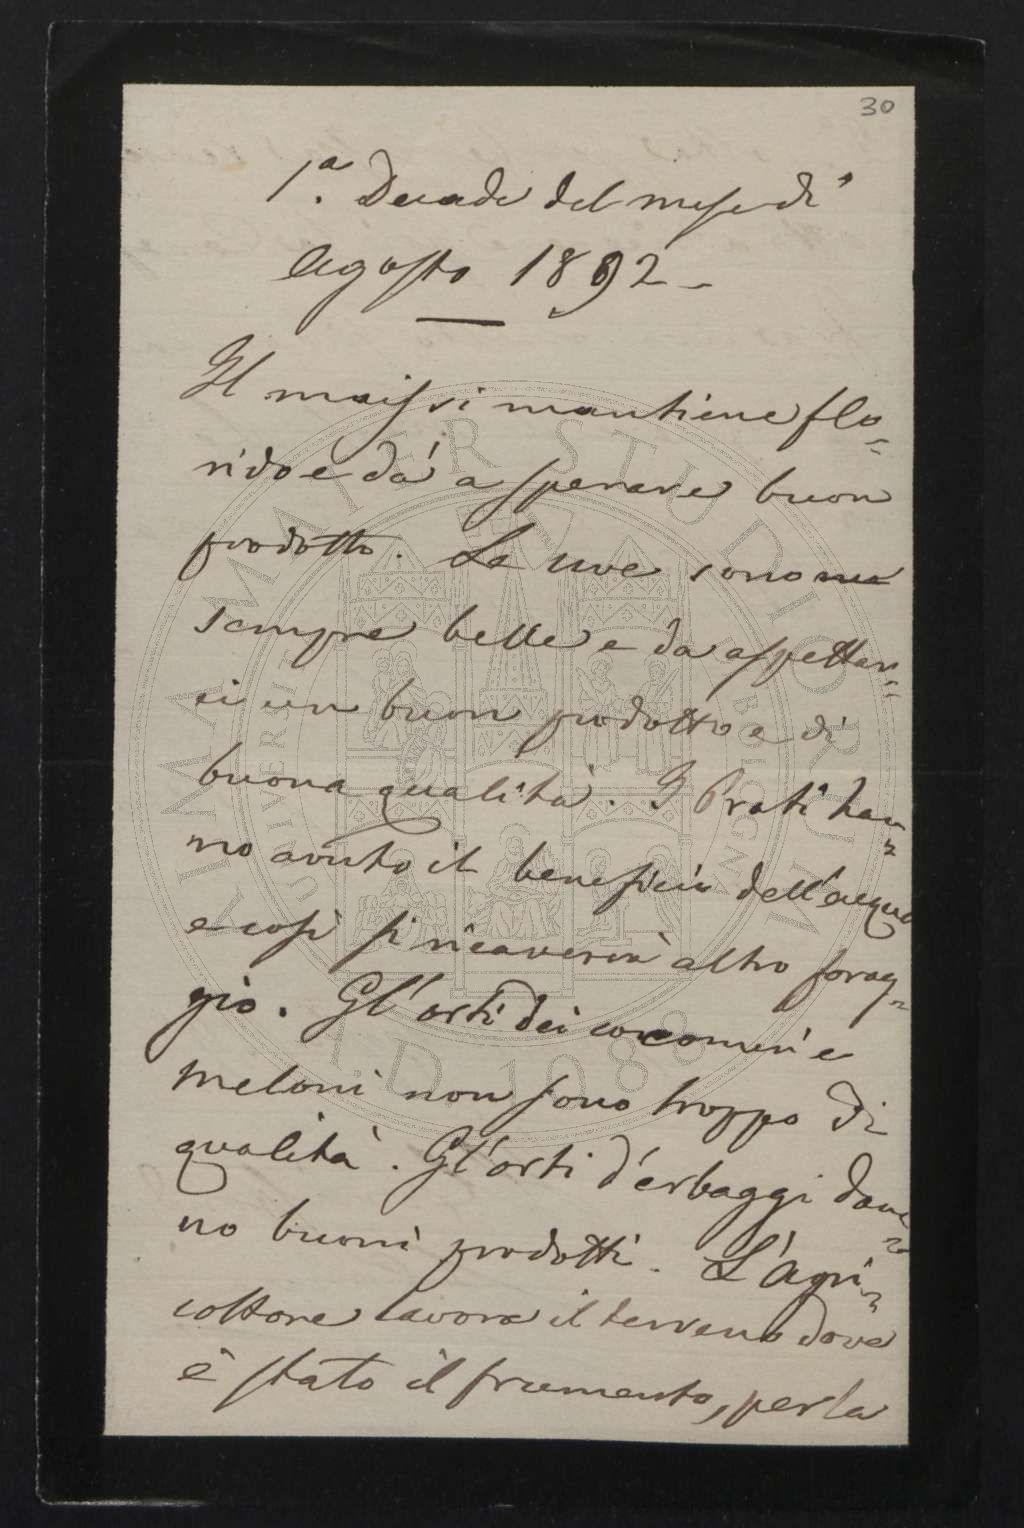 30
1.ª Decade del mese di
Agosto 1892 -
Il mais si mantiene flo=
rido e dà a sperare buon
prodotto. Le uve sono
sempre belle e da aspettar=
si un buon prodotto e di
buona qualità. I Prati han=
no avuto il beneficio dell'acqua
e così si ricaverà altro forag=
gio. Gl'orti dei cocomeri e
meloni non sono troppo di
qualità. Gl'orti d'erbaggi dan=
no buoni prodotti. L'agri=
coltore lavora il terreno dove
è stato il frumento, per la
ALMA MATER STUDIORUM
A.D. 1088